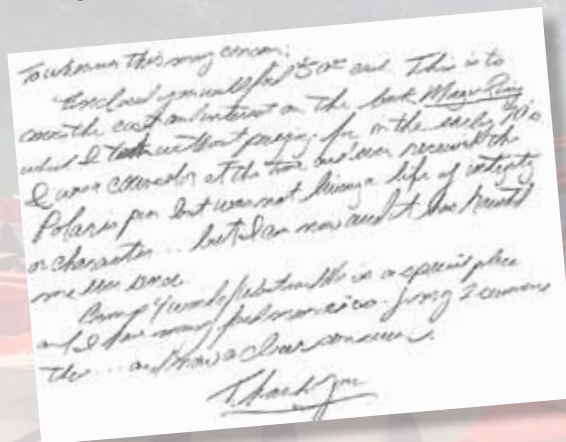 To whom this may concern;
Enclosed you will find $50.00 cash. This is to
cover the cost and interest on the book Magic Ring
which I took without paying for in the early 70's.
I was a counselor at the time and even received the
Polaris pin but was not living a life of integrity
or character... but I am now and it has haunted
me ever since.
Camp is a special place
and I have many fond memories from my 2 summers
there... and now a clear conscience.
Thank you